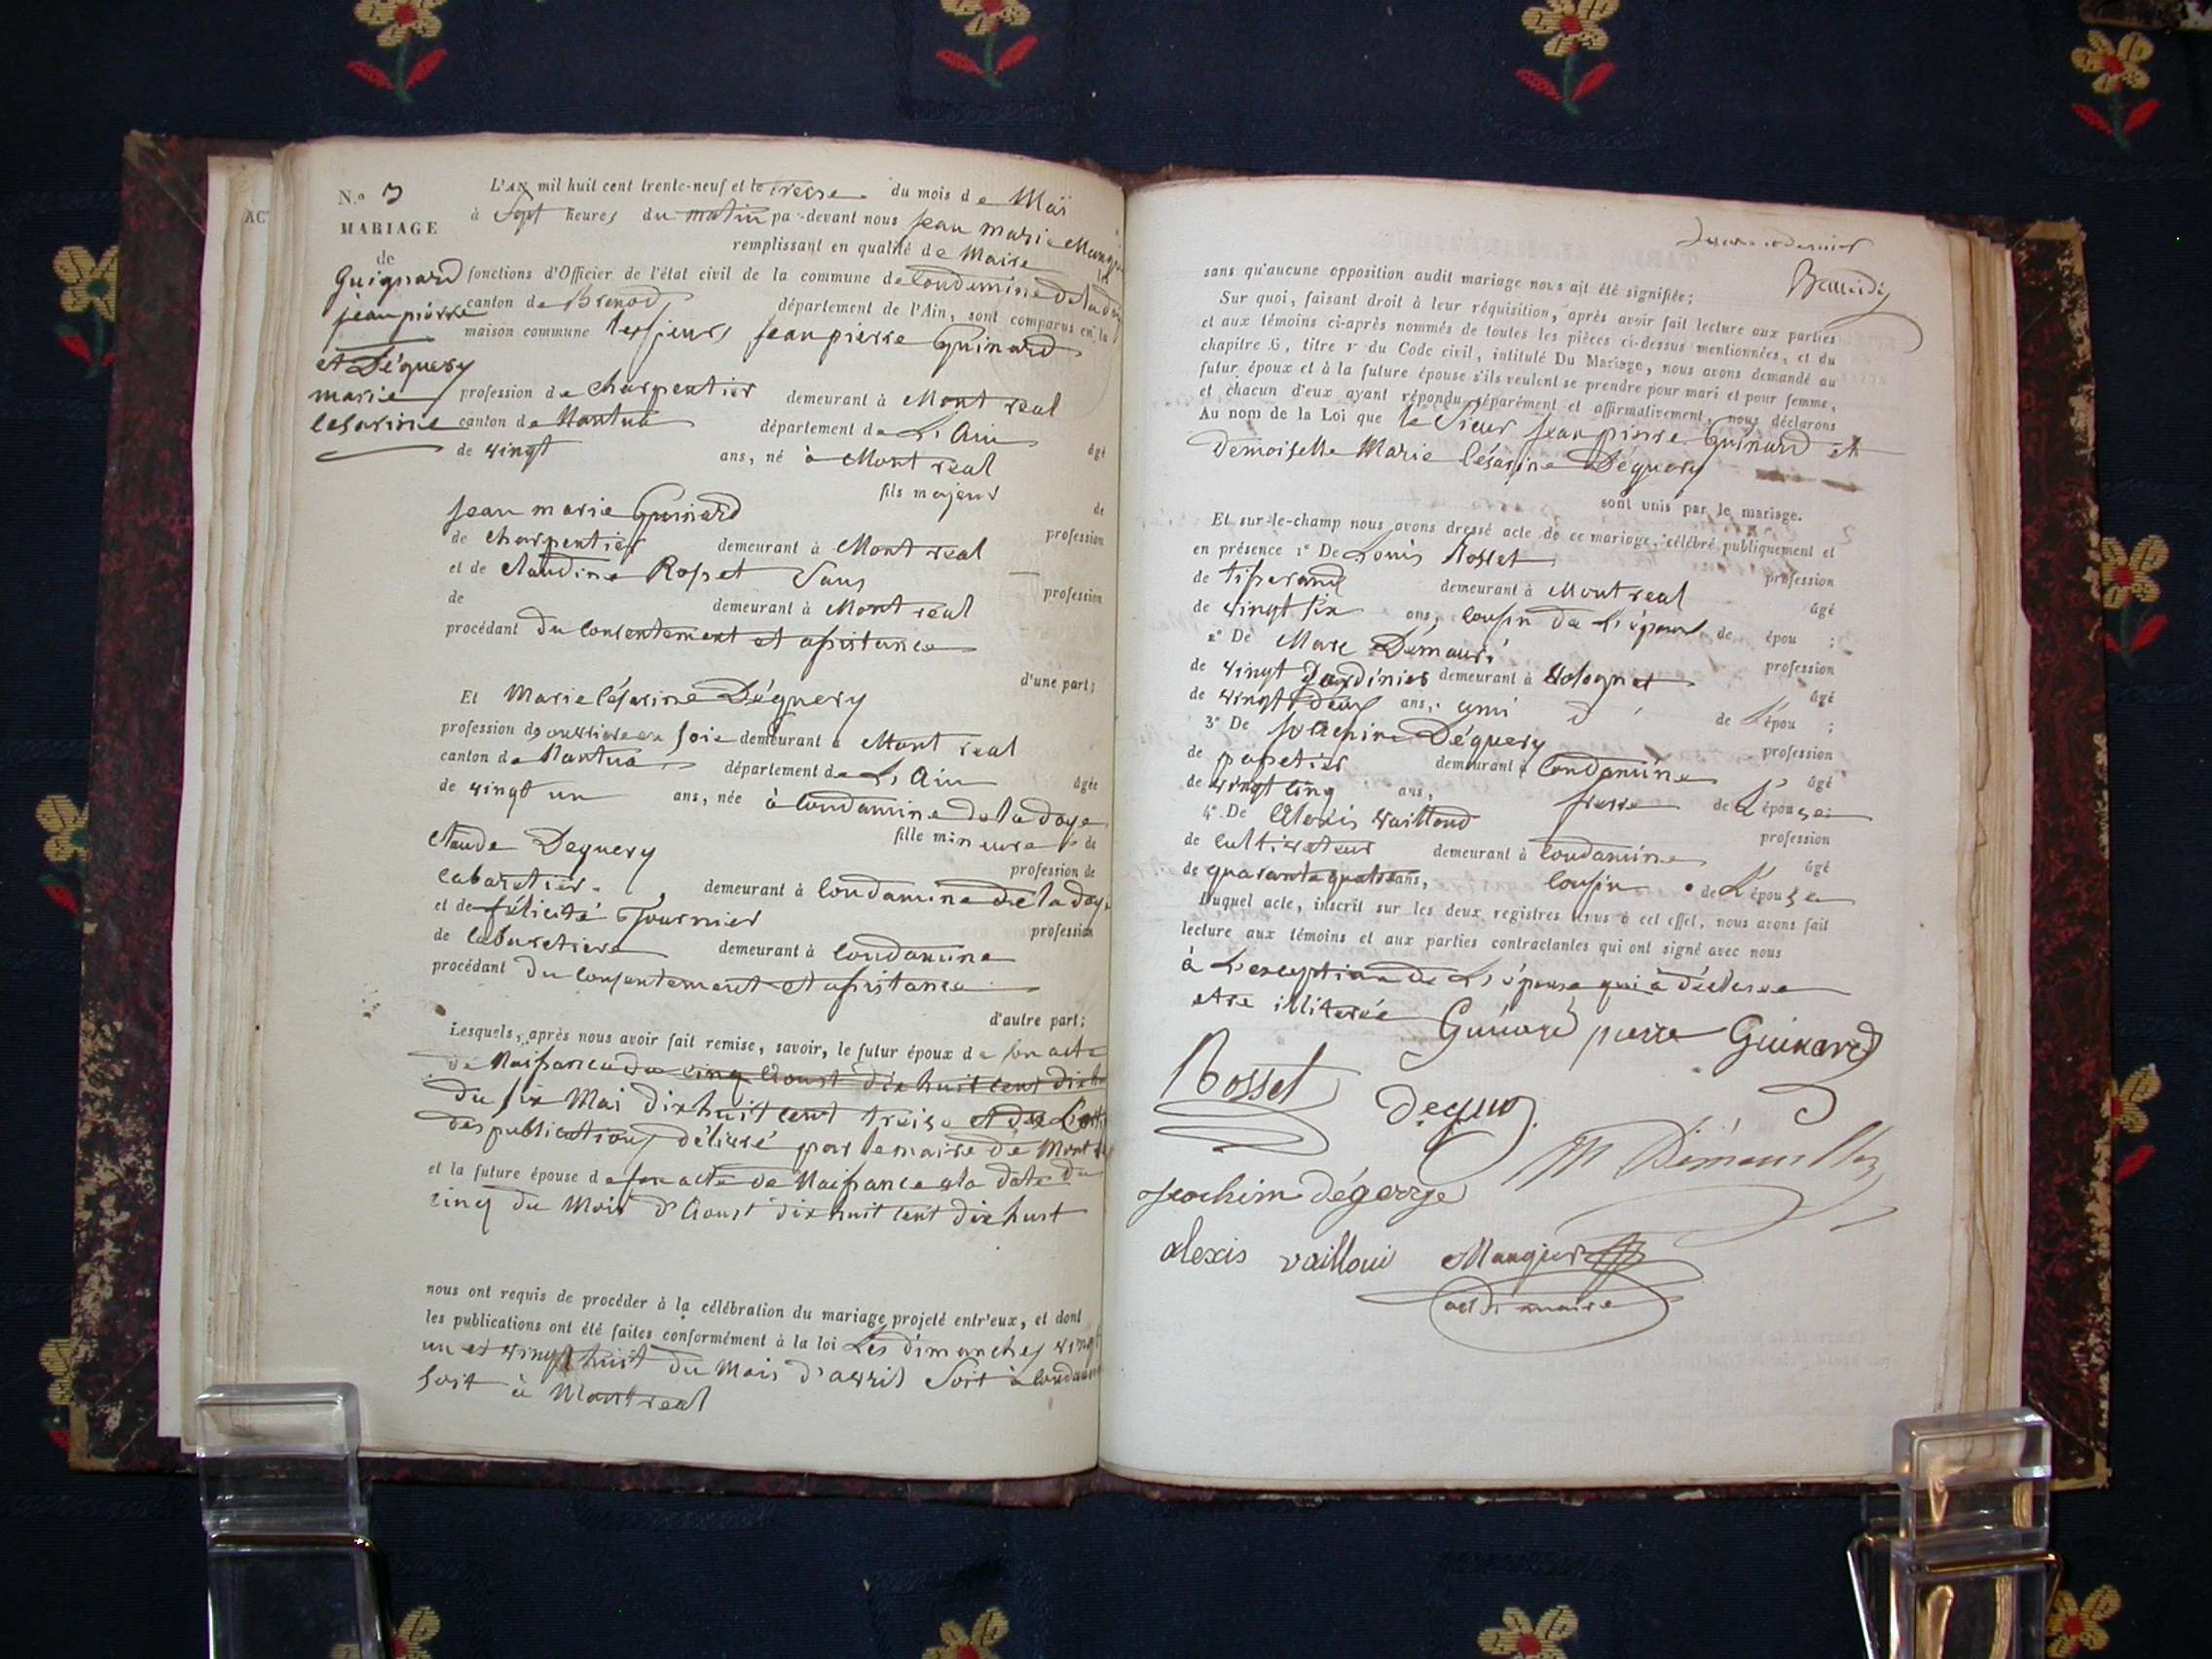 AC
N.o 3
MARIAGE
de
Guignard
jean pierre
et Déguery
marie
Césarine
L'AN mil huit cent trente-neuf et le treize du mois de Mai
à Sept heures du matin par-devant nous jean marie
remplissant en qualité de Maire les
fonctions d'Officier de l'état civil de la commune de Condamine de la doye
canton de Brenod département de l'Ain, sont comparus en la
maison commune les sieurs jean pierre Guinard
profession de charpentier demeurant à Mont real
canton de Nantua département de L'Ain âgé
de vingt ans, né à Mont real
fils majeur de
jean marie Guinard profession
de charpentier demeurant à Mont real
et de Claudine Rosset Sans profession
de demeurant à Mont real
procédant du consentement et assistance
d'une part;
Et Marie Césarine Déguery
profession de ouvriere en soie demeurant à Mont real
canton de Nantua département de L'Ain âgée
de vingt un ans, née à Condamine de la doye
fille mineure de
Claude Deguery profession de
cabaretier demeurant à Condamine de la doye
et de félicité Tournier profession
de cabaretiere demeurant à Condamine
procédant du consentement et assistance
d'autre part;
Lesquels, après nous avoir fait remise, savoir, le futur époux de son acte
de Naissance du cinq Aoust dix huit cent dix
du six Mai dix huit cent treize et du
des publications délivré par le maire de Mont
et la future épouse de son acte de Naissance a la date du
cinq du Mois d'Aoust dix huit cent dix huit
nous ont requis de procéder à la célébration du mariage projeté entr'eux, et dont
les publications ont été faites conformément à la loi Les dimanches vingt
un et vingt huit du Mois d'avril Soit à Condamine
soit à Montreal
sans qu'aucune opposition audit mariage nous ait été signifiée;
Sur quoi, faisant droit à leur réquisition, après avoir fait lecture aux parties
et aux témoins ci-après nommés de toutes les pièces ci-dessus mentionnées, et du
chapitre 6, titre v du Code civil, intitulé Du Mariage, nous avons demandé au
futur époux et à la future épouse s'ils veulent se prendre pour mari et pour femme,
et chacun d'eux ayant répondu séparément et affirmativement, nous déclarons
Au nom de la Loi que le Sieur jean pierre Guinard et
Demoiselle Marie Césarine Déguery
sont unis par le mariage.
Et sur-le-champ nous avons dressé acte de ce mariage, célébré publiquement et
en présence 1o De Louis Rosset profession
de tisserand demeurant à Mont real âgé
de vingt six ans, cousin de L'époux de épou ;
2o De Marc profession
de vingt Jardinier demeurant à Volognat âgé
de vingt deux ans, ami de L'épou ;
3o De joachim Déguery profession
de papetier demeurant à Condamine âgé
de vingt cinq ans, frere de L'épouse;
4o De Alexis Vailloud profession
de cultivateur demeurant à Condamine âgé
de quarante quatre ans, cousin de L'épouse
Duquel acte, inscrit sur les deux registres tenus à cet effet, nous avons fait
lecture aux témoins et aux parties contractantes qui ont signé avec nous
à L'exception de L'épouse qui a déclaré
etre illiterée
Guinard pierre Guinard
Rosset
joachim dégerrye
alexis vailloud